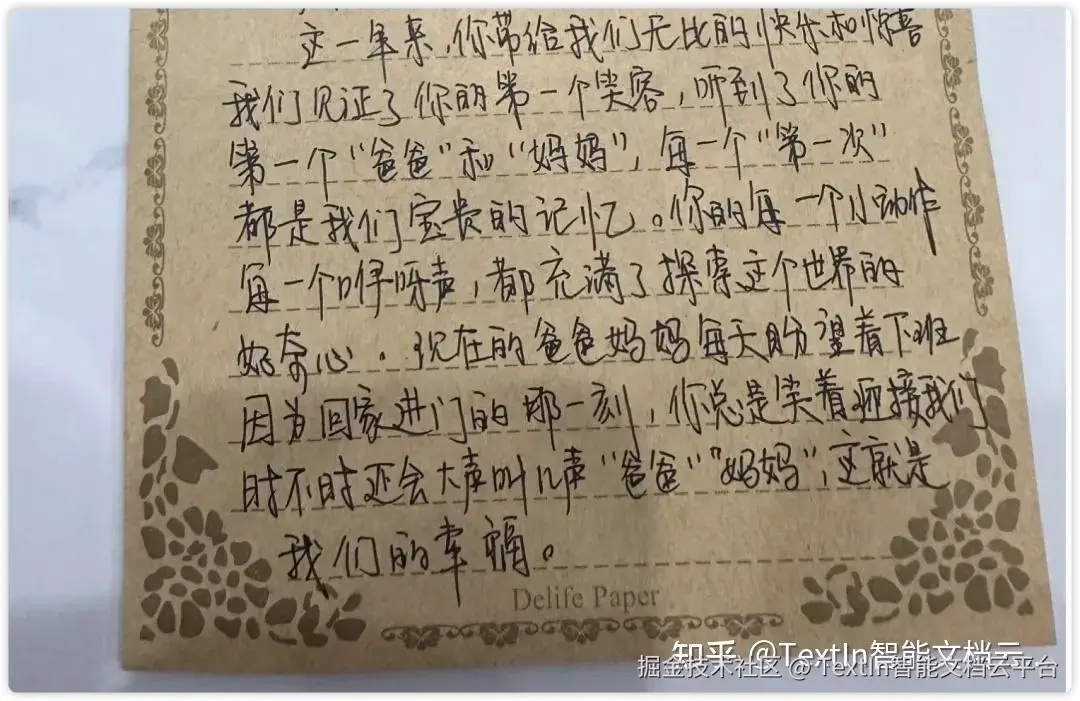 这一年来,你带给我们无比的快乐和惊喜
我们见证了你的第一个笑容,听到了你的
第一个“爸爸”和“妈妈”,每一个“第一次”
都是我们宝贵的记忆。你的每一个小动作
每一个咿呀声,都充满了探索这个世界的
好奇心。现在的爸爸妈妈每天盼望着下班
因为回家进门的那一刻,你总是笑着迎接我们
时不时还会大声叫几声“爸爸”“妈妈”,这就是
我们的幸福。
Delife Paper
知乎 @TextIn智能文档云
掘金技术社区 @ TextIn智能文档云平台